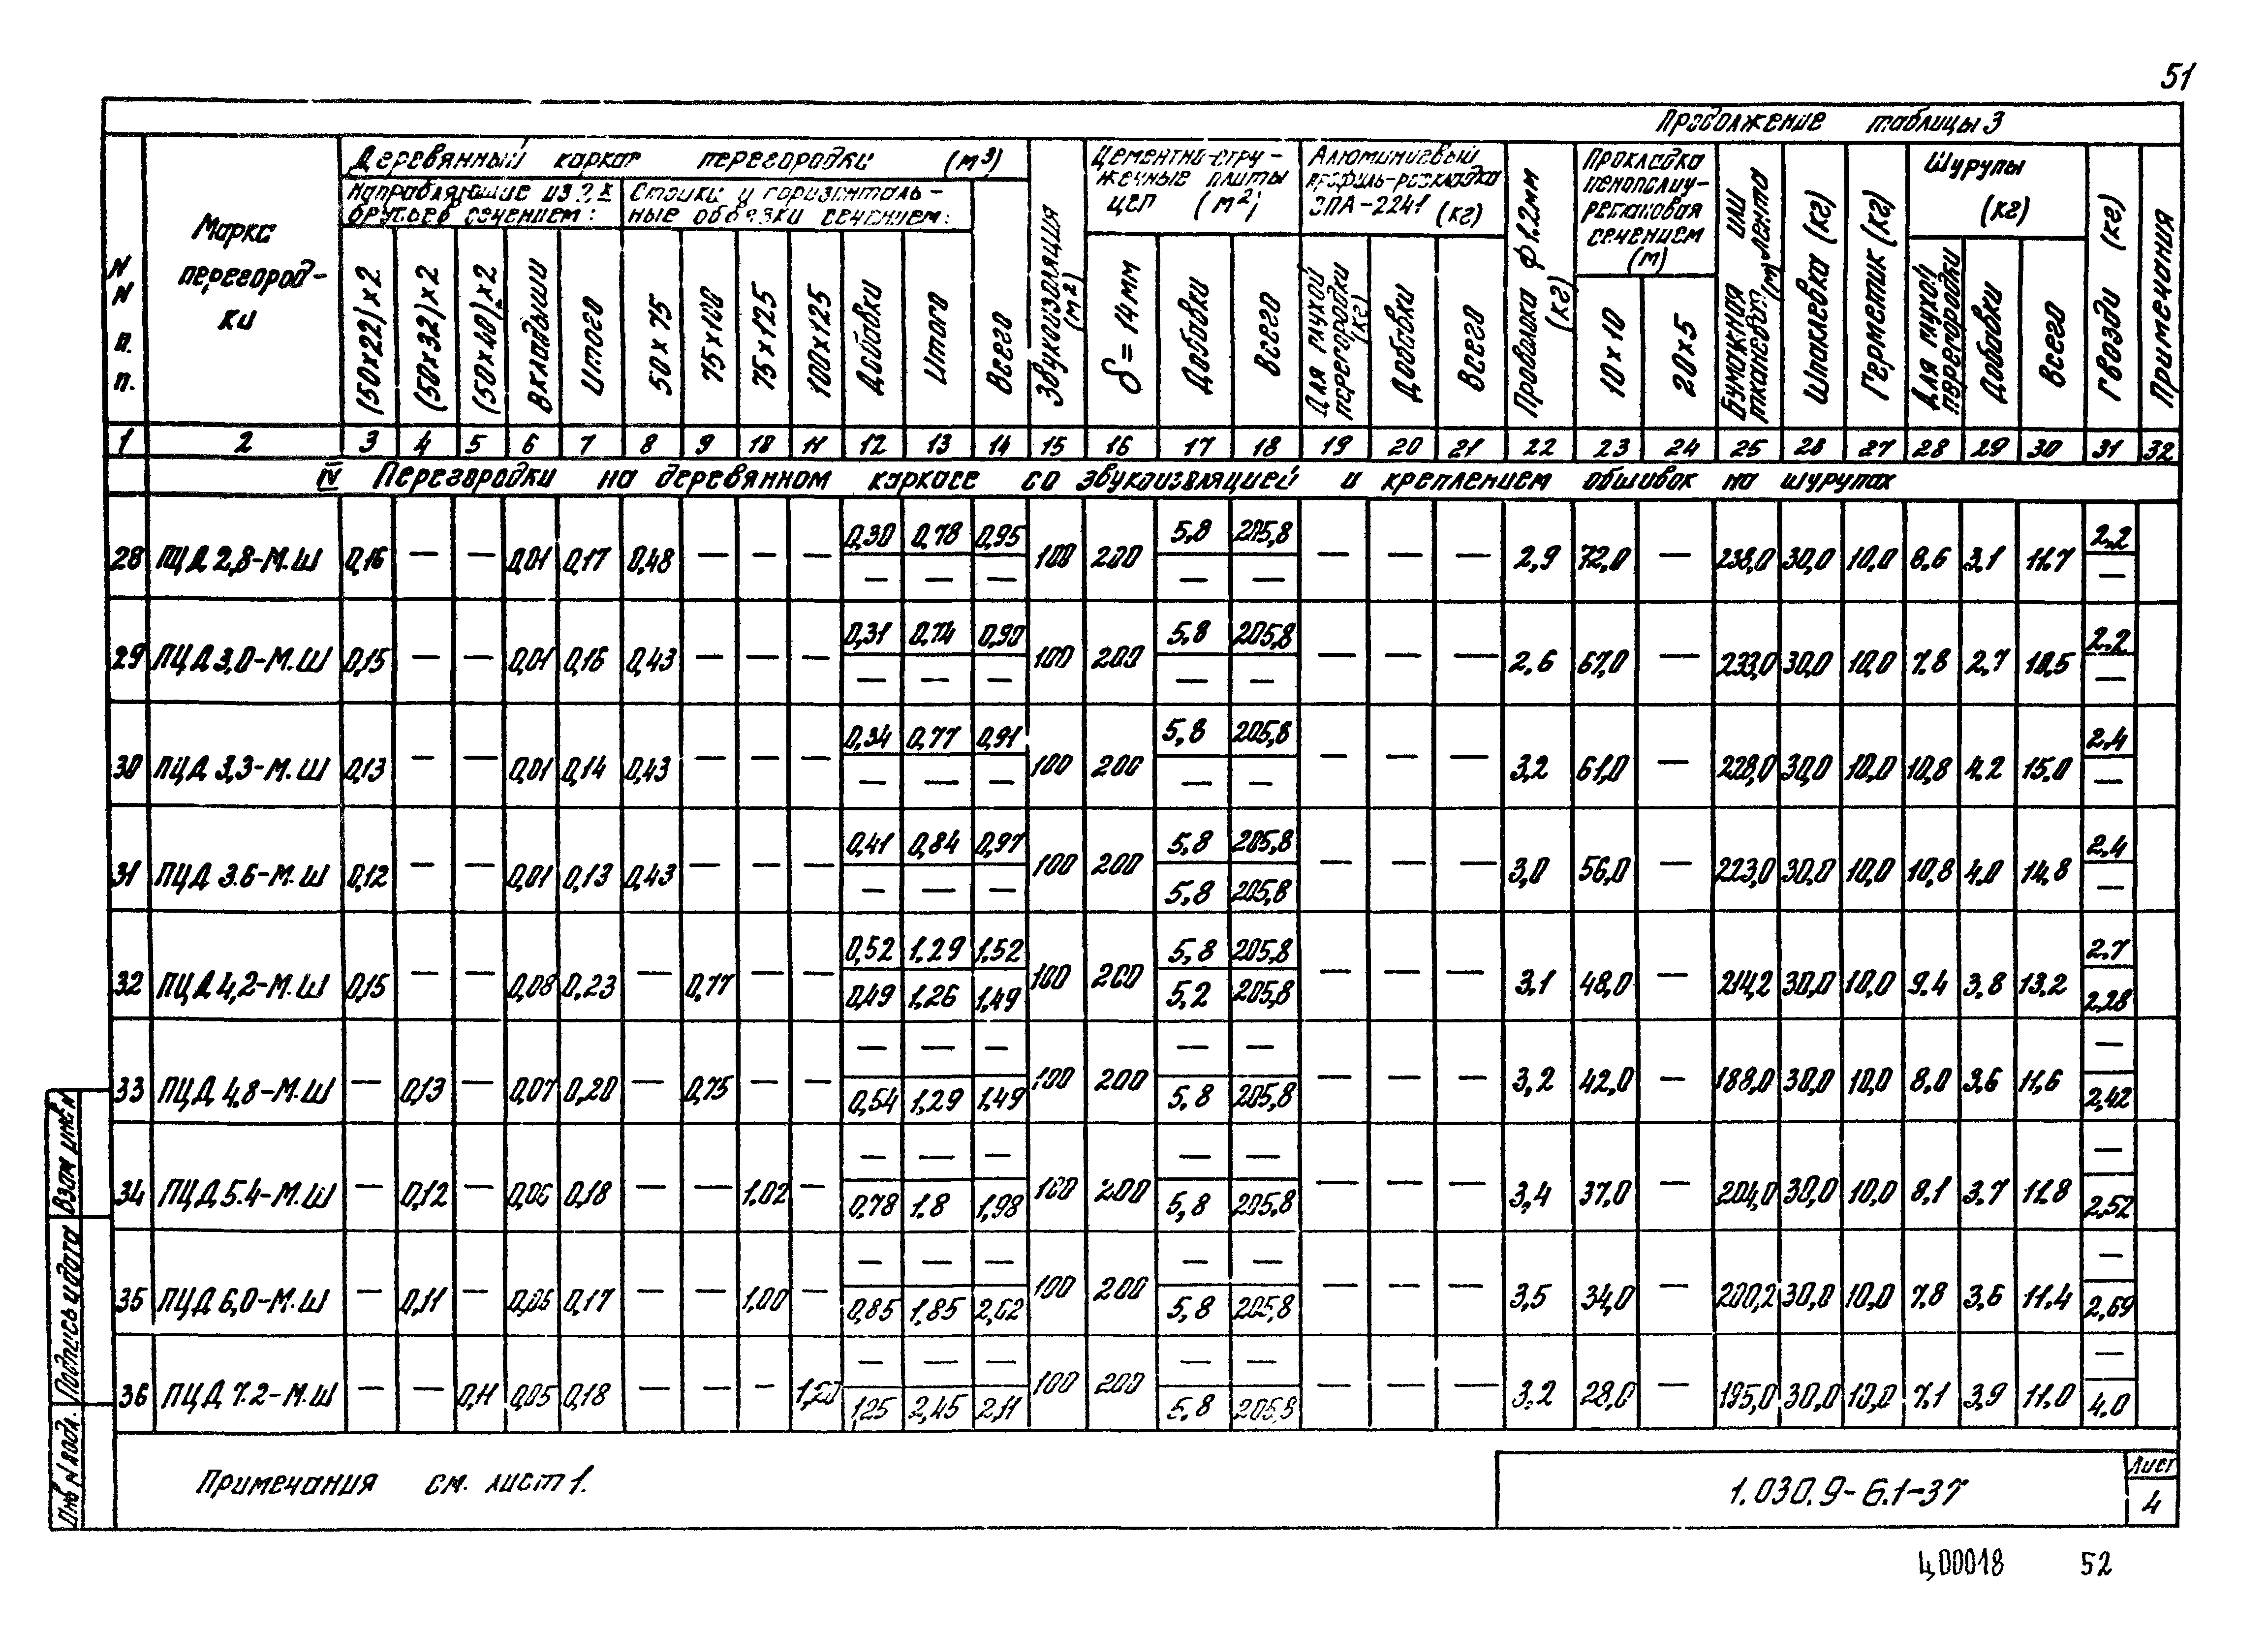 51
Продолжение таблицы 3
NN п.п.
Марка перегород-ки
Деревянный каркас перегородки (м³)
Направляющие из 2х брусьев сечением:
Стойки и горизонталь-ные обвязки сечением:
(50х22)х2 (50х32)х2 (50х40)х2 Вкладыши Итого 50х75 75х100 75х125 100х125 Добавки Итого Всего
Звукоизоляция (м²)
Цементно-стру-жечные плиты ЦСП (м²)
δ=14мм Добавки Всего
Алюминиевый профиль-раскладка ЗПА-2241 (кг)
Для глухой перегородки (кг) Добавки Всего
Проволока ф1.2мм (кг)
Прокладка пенополиу-ретановая сечением (м)
10х10 20х5
Бумажная или тканевая лента (м)
Шпаклевка (кг)
Герметик (кг)
Шурупы (кг)
Для глухой перегородки Добавки Всего
Гвозди (кг)
Примечания
1 2 3 4 5 6 7 8 9 10 11 12 13 14 15 16 17 18 19 20 21 22 23 24 25 26 27 28 29 30 31 32
IV Перегородки на деревянном каркасе со звукоизоляцией и креплением обшивок на шурупах
0,30 0,78 0,95 5,8 205,8 2,2
28 ПЦД 2,8-М.Ш 0,16 — — 0,01 0,17 0,48 — — — 100 200 — — — 2,9 72,0 — 238,0 30,0 10,0 8.6 3,1 11.7
— — — — — —
0,31 0,74 0,90 5.8 205,8 2.2
29 ПЦД 3,0-М.Ш 0,15 — — 0,01 0,16 0,43 — — — 100 200 — — — 2.6 67,0 — 233,0 30,0 10,0 7.8 2.7 10.5
— — — — — —
0,34 0,77 0,91 5,8 205,8 2,4
30 ПЦД 3,3-М.Ш 0,13 — — 0,01 0,14 0,43 — — — 100 200 — — — 3,2 61,0 — 228,0 30,0 10,0 10,8 4.2 15,0
— — — — — —
0,41 0,84 0,97 5,8 205,8 2,4
31 ПЦД 3.6-М.Ш 0,12 — — 0,01 0,13 0,43 — — — 100 200 — — — 3,0 56,0 — 223,0 30,0 10,0 10,8 4,0 14,8
— — — 5,8 205,8 —
0,52 1.29 1,52 5,8 205,8 2.7
32 ПЦД 4,2-М.Ш 0,15 — — 0,08 0,23 — 0,77 — — 100 200 — — — 3.1 48,0 — 214,2 30,0 10,0 9.4 3,8 13.2
0,49 1.26 1,49 5,2 205,8 2,28
— — — — — —
33 ПЦД 4,8-М.Ш — 0,13 — 0,07 0,20 — 0,75 — — 100 200 — — — 3,2 42,0 — 188,0 30,0 10,0 8,0 3,6 11,6
0,54 1,29 1,49 5,8 205,8 2,42
— — — — — —
34 ПЦД 5.4-М.Ш — 0,12 — 0,06 0,18 — — 1.02 — 100 200 — — — 3,4 37,0 — 204,0 30,0 10,0 8,1 3,7 11.8
0,78 1.8 1,98 5,8 205,8 2,52
— — — — — —
35 ПЦД 6,0-М.Ш — 0,11 — 0,06 0,17 — — 1,00 — 100 200 — — — 3,5 34,0 — 200,2 30,0 10,0 7.8 3,6 11.4
0,85 1.85 2,02 5,8 205,8 2,69
— — — — — —
36 ПЦД 7.2-М.Ш — — 0,11 0,05 0,18 — — — 1,20 100 200 — — — 3.2 28,0 — 195,0 30,0 10,0 7.1 3,9 11.0
1,25 2,45 2,11 5.8 205,8 4.0
Взам инв.N
Подпись и дата
Инв N подл.
Примечания см. лист 1.
1.030.9-6.1-37
Лист
4
Ц00018 52